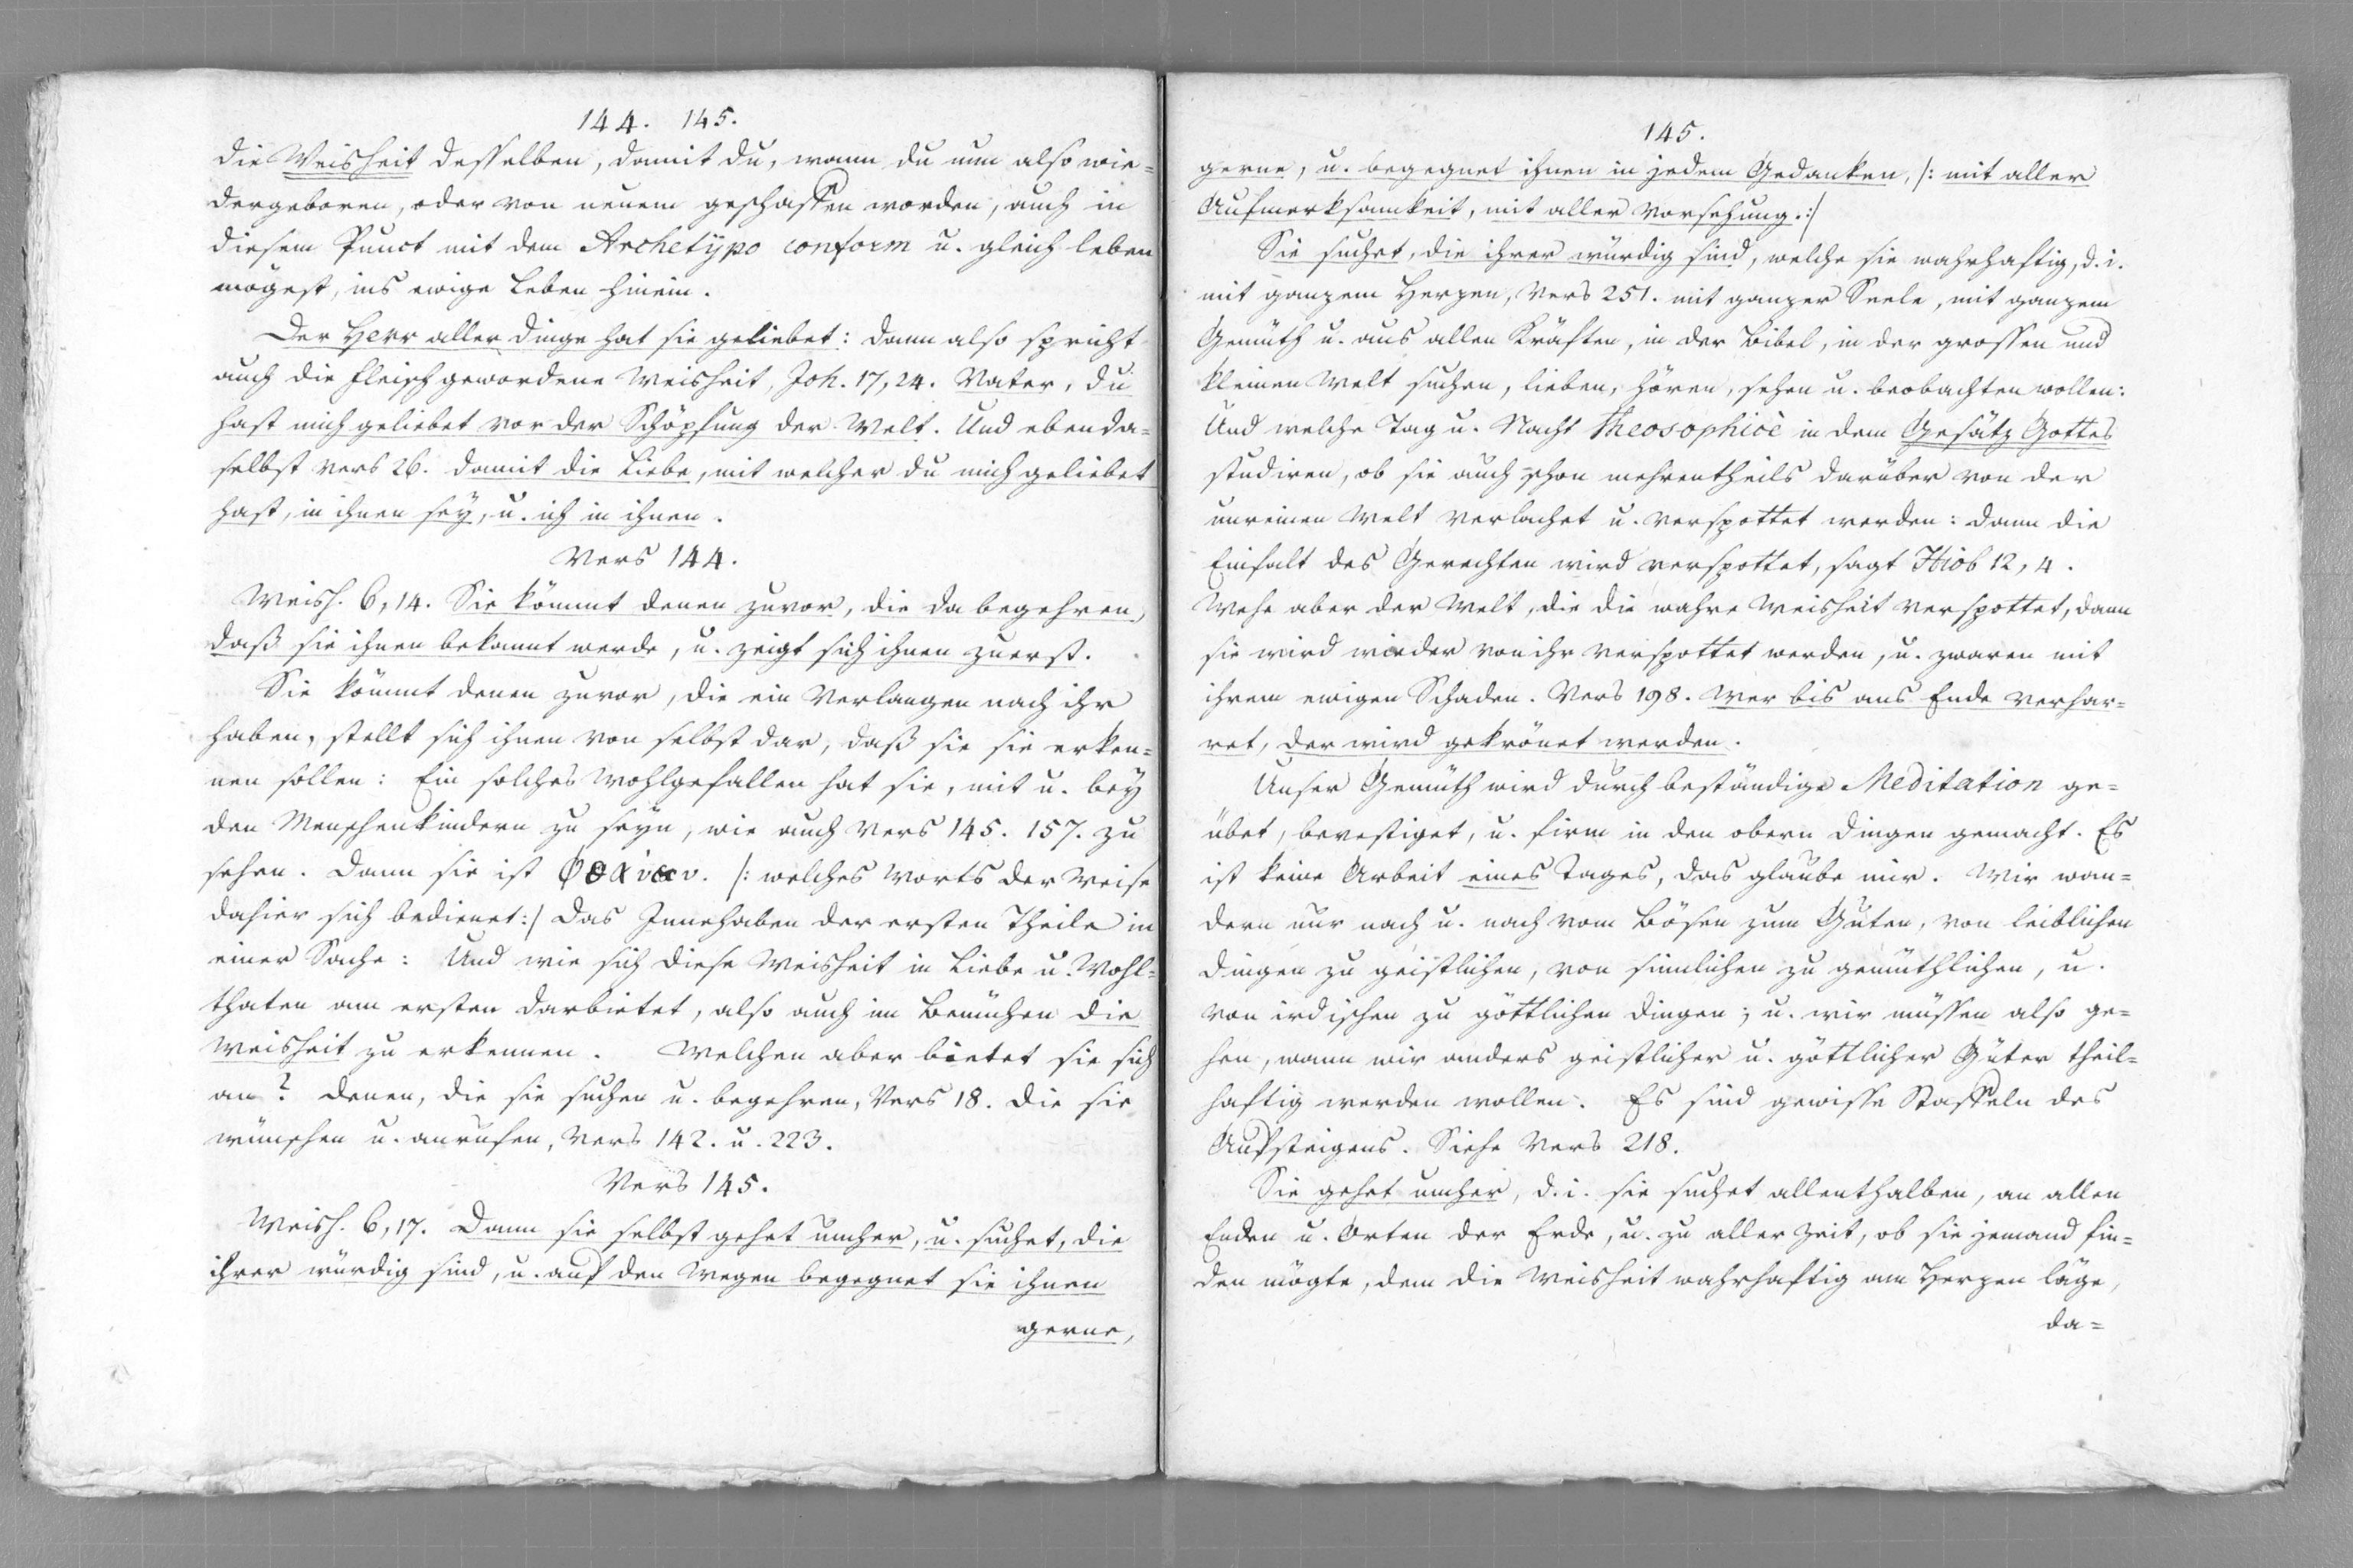 144. 145.
die Weisheit desselben, damit du, wann du nun also wie=
dergeboren, oder von neuem geschaffen worden, auch in
diesem Punct mit dem Archetÿpo conform u. gleich leben
mögest, ins ewige Leben hinein.
Der Herr aller Dinge hat sie geliebet: dann also spricht
auch die Fleisch gewordene Weisheit, Joh. 17, 24. Vater, du
hast mich geliebet vor der Schöpfung der Welt. Und ebenda=
selbst Vers 26. damit die Liebe, mit welcher du mich geliebet
hast, in ihnen seÿ, u. ich in ihnen.
Vers 144.
Weish. 6, 14. Sie kömmt denen zuvor, die da begehren,
daß sie ihnen bekannt werde, u. zeigt sich ihnen zuerst.
Sie kömmt denen zuvor, die ein Verlangen nach ihr
haben, stellt sich ihnen von selbst dar, daß sie sie erken=
nen sollen: Ein solches Wohlgefallen hat sie, mit u. beÿ
den Menschenkindern zu seÿn, wie auch Vers 145. 157. zu
sehen. Dann sie ist /: welches Worts der Weise
dahier sich bedienet :/ das Innehaben der ersten Theile in
einer Sache: Und wie sich diese Weisheit in Liebe u. Wohl=
thaten am ersten darbietet, also auch im Bemühen die
Weisheit zu erkennen. Welchen aber bietet sie sich
an? denen, die sie suchen u. begehren, Vers 18. die sie
wünschen u. anrufen, Vers 142. u. 223.
Vers 145.
Weish. 6, 17. Dann sie selbst gehet umher, u. suchet, die
ihrer würdig sind, u. auf den Wegen begegnet sie ihnen
gerne,
145.
gerne, u. begegnet ihnen in jedem Gedanken, /: mit aller
Aufmerksamkeit, mit aller Vorsehung. :/
Sie suchet, die ihrer würdig sind, welche sie wahrhaftig, d. i.
mit ganzem Herzen, Vers 251. mit ganzer Seele, mit ganzem
Gemüth u. aus allen Kräften, in der Bibel, in der grossen und
kleinen Welt suchen, lieben, hören, sehen u. beobachten wollen:
Und welche Tag u. Nacht Theosophicè in dem Gesätz Gottes
studiren, ob sie auch schon mehrentheils darüber von der
unreinen Welt verlachet u. verspottet werden: dann die
Einfalt des Gerechten wird verspottet, sagt Hiob 12, 4.
Wehe aber der Welt, die die wahre Weisheit verspottet, dann
sie wird wieder von ihr verspottet werden, u. zwaren mit
ihrem ewigen Schaden. Vers 198. Wer bis ans Ende verhar=
ret, der wird gekrönet werden.
Unser Gemüth wird durch beständige Meditation ge=
übet, bevestiget, u. firm in den obern Dingen gemacht. Es
ist keine Arbeit eines Tages, das glaube mir. Wir wan=
dern nur nach u. nach vom Bösen zum Guten, von leiblichen
Dingen zu geistlichen, von sinnlichen zu gemüthlichen, u.
von irdischen zu göttlichen Dingen; u. wir müssen also ge=
hen, wann wir anders geistlicher u. göttlicher Güter theil=
haftig werden wollen. Es sind gewisse Staffeln des
Aufsteigens. Siehe Vers 218.
Sie gehet umher, d. i. sie suchet allenthalben, an allen
Enden u. Orten der Erde, u. zu aller Zeit, ob sie jemand fin=
den mögte, dem die Weisheit wahrhaftig am Herzen läge,
da=